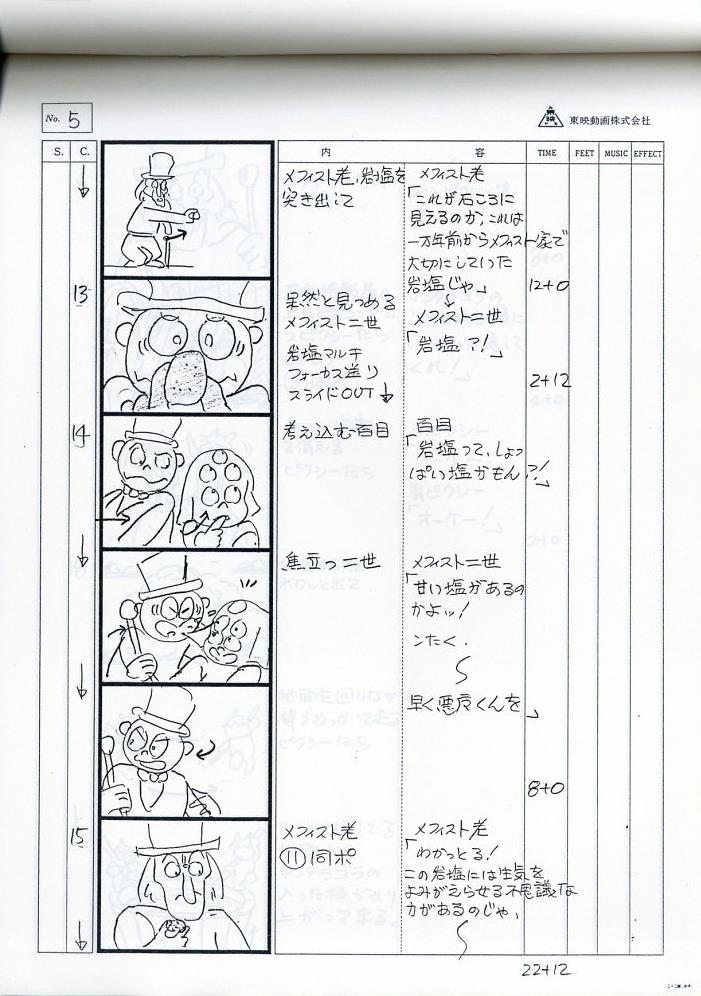 No. 5
東映動画株式会社
S. C. 内 容 TIME FEET MUSIC EFFECT
メフィスト老、岩塩を
突き出して
メフィスト老
「これが石ころに
見えるのか、これは
一万年前からメフィスト家で
大切にしていった
岩塩じゃ」
12+0
13
呆然と見つめる
メフィスト二世
岩塩マルチ
フォーカス送り
スライドOUT
メフィスト二世
「岩塩?!」
2+12
14
考え込む百目
百目
「岩塩って、しょっ
ぱい塩かもん?!」
焦立つ二世
メフィスト二世
「甘い塩があるの
かよッ!
ンたく.
早く悪魔くんを」
8+0
15
メフィスト老
⑪同ポ
メフィスト老
「わかっとる!
この岩塩には生気を
よみがえらせる不思議な
力があるのじゃ、
22+12